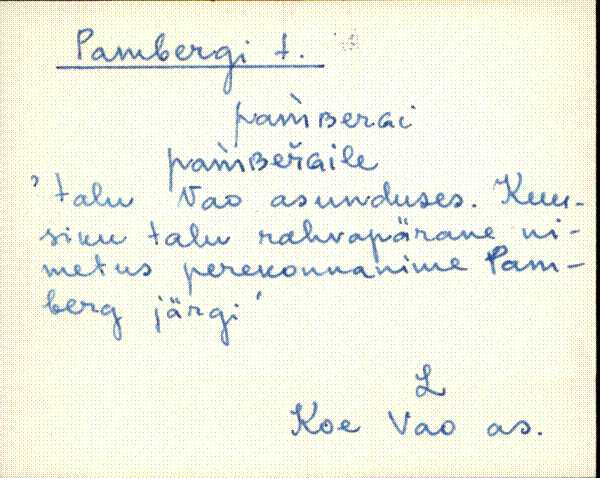 Pambergi t.
pam̀ʙerɢi
pam̀ʙeřɢile
' talu Vao asunduses. Kuu-
siku talu rahvapärane ni-
metus perekonnanime Pam-
berg järgi '
L
Koe Vao as.